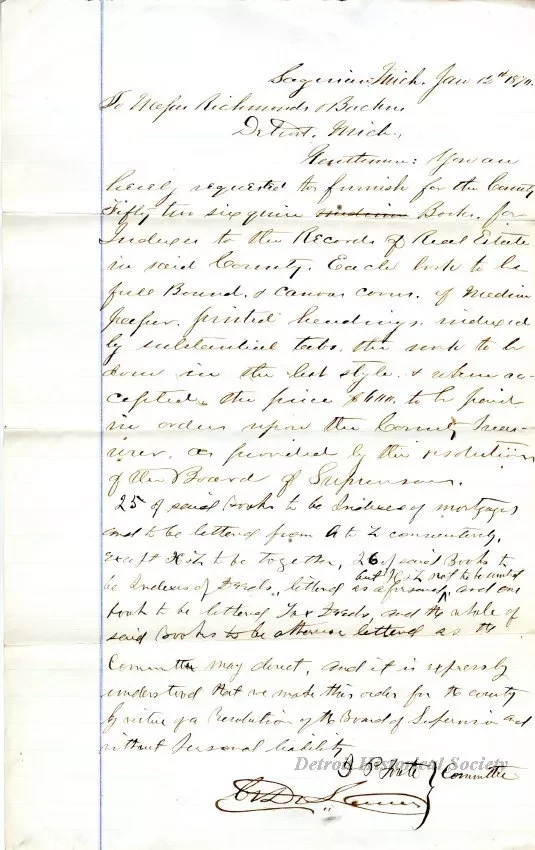 Saginaw, Mich. Jan 12th 1870.
To Messrs Richmonds & Backus
Detroit, Mich.,
Gentlemen: You are
hereby requested to furnish for the County
Fifty two six quire medium Books for
Indexes to the Records of Real Estate
in said County. Each book to be
full Bound, & canvas cover, of Medium
paper, printed headings, indexed
by substantial tabs, the work to be
done in the best style, & when ac-
cepted the price $600. to be paid
in orders upon the County Treas-
urer, as provided by the resolution
of the Board of Supervisors.
25 of said books to be Indexes of mortgages
and to be lettered from A to Z consecutively,
except X & Z to be together, 26 of said Books to
but X & Z not to be united
be Indexes of Deeds, lettered as aforesaid, and one
book to be lettered Tax Deeds, and the whole of
said books to be otherwise lettered as the
Committee may direct, and it is expressly
understood that we make this order for the county
by virtue of a Resolution of the Board of Supervisors and
without personal liability
Detroit Historical Society
Committee